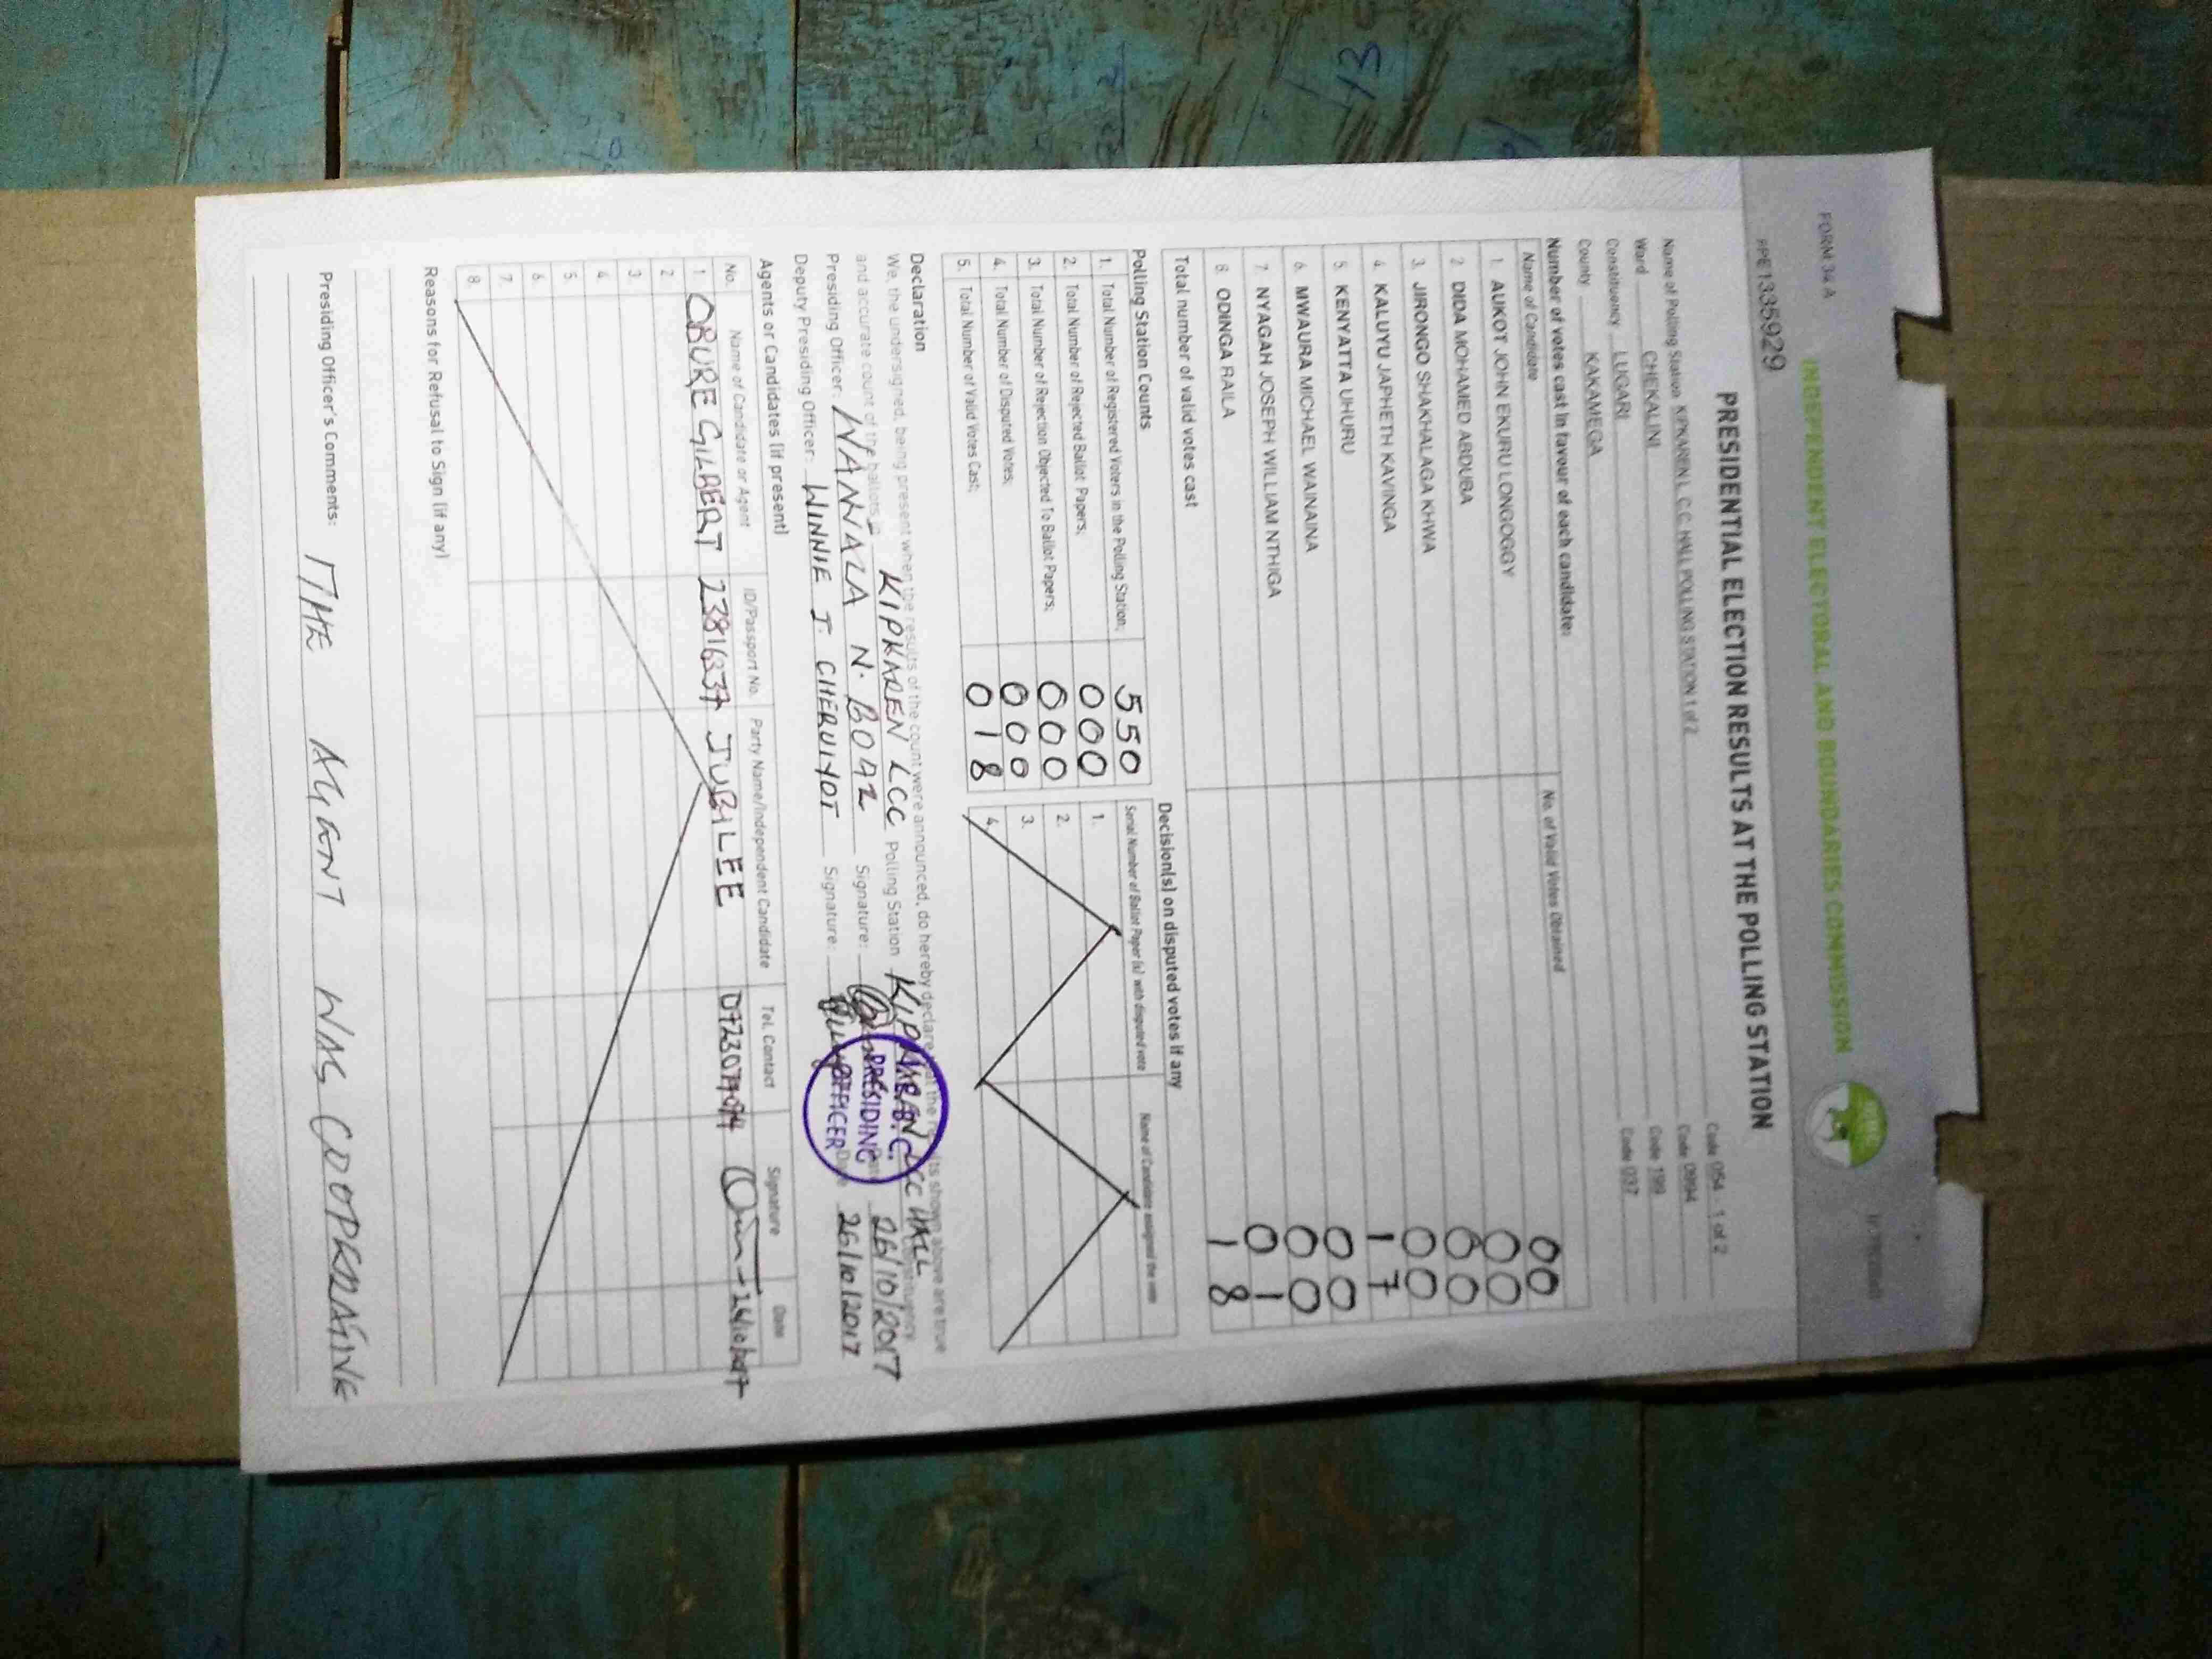 FORM 34 A
INDEPENDENT ELECTORAL AND BOUNDARIES COMMISSION
PPE1335929
PRESIDENTIAL ELECTION RESULTS AT THE POLLING STATION
Name of Polling Station KIPKAREN L.C.C. HALL POLLING STATION 1 of 2 Code 054 1 of 2
Ward CHEKALINI Code 0994
Constituency LUGARI Code 199
County KAKAMEGA Code 037
Number of votes cast in favour of each candidate:
Name of Candidate No. of Valid Votes Obtained
1. AUKOT JOHN EKURU LONGOGGY 00
2 DIDA MOHAMED ABDUBA 00
3. JIRONGO SHAKHALAGA KHWA 00
4. KALUYU JAPHETH KAVINGA 00
5. KENYATTA UHURU 17
6. MWAURA MICHAEL WAINAINA 00
7. NYAGAH JOSEPH WILLIAM NTHIGA 00
8. ODINGA RAILA 01
Total number of valid votes cast 18
Polling Station Counts
1. Total Number of Registered Voters in the Polling Station; 550
2. Total Number of Rejected Ballot Papers; 000
3. Total Number of Rejection Objected To Ballot Papers; 000
4. Total Number of Disputed Votes; 000
5. Total Number of Valid Votes Cast; 018
Decision(s) on disputed votes if any
Serial Number of Ballot Paper (s) with disputed vote Name of Candidate assigned the vote
1.
2.
3.
4.
Declaration
We, the undersigned, being present when the results of the count were announced, do hereby declare that the results shown above are true
and accurate count of the ballots in KIPKAREN LCC Polling Station KIPKAREN LCC HALL Constituency
Presiding Officer: WANNALA N. BOAZ Signature: Date 26/10/2017
Deputy Presiding Officer: WINNIE J. CHERUIYOT Signature: Date 26/10/2017
PRESIDING
OFFICER
Agents or Candidates (if present)
No. Name of Candidate or Agent ID/Passport No. Party Name/Independent Candidate Tel. Contact Signature Date
1 OBURE GILBERT 23816637 JUBILEE
2
3.
4
5.
6.
7.
8.
Reasons for Refusal to Sign (if any)
Presiding Officer's Comments: THE AGENT WAS COOPERATING